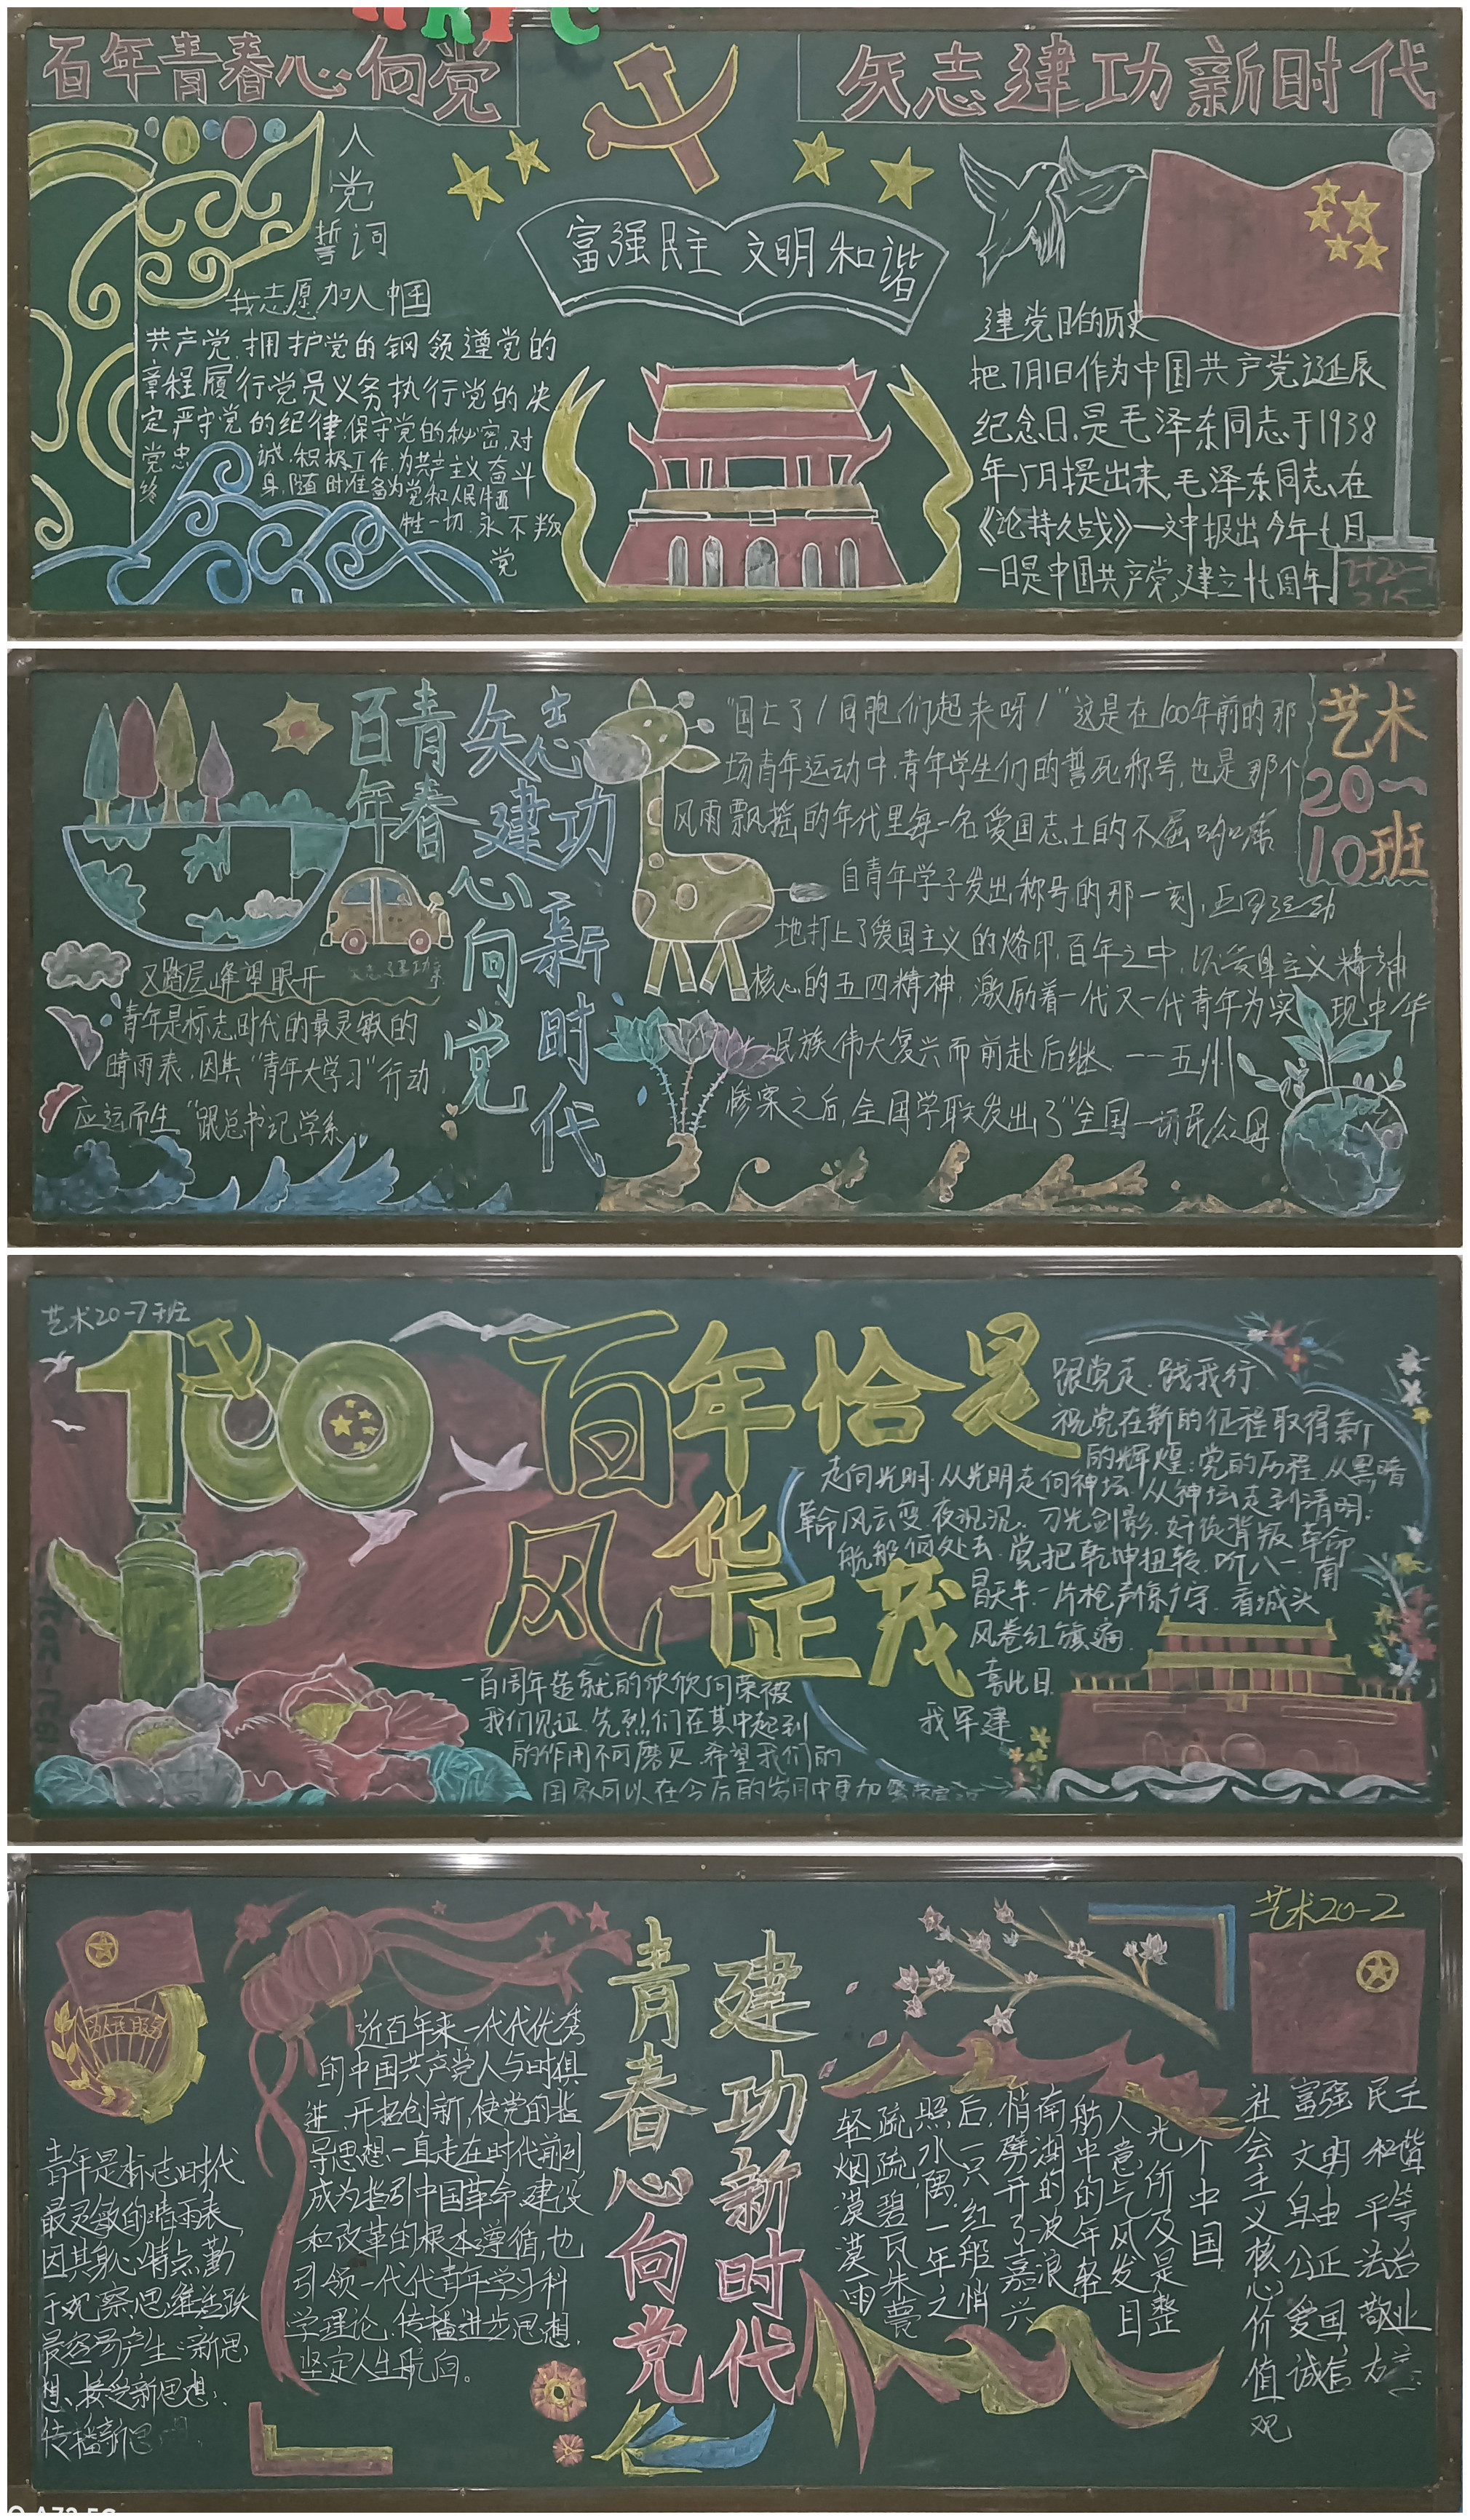 百年青春心向党
矢志建功新时代
入党誓词
我志愿加入中国
共产党,拥护党的钢领遵党的
章程履行党员义务执行党的决
定严守党的纪律,保守党的秘密,对
党忠诚,积极工作,为共产主义奋斗
终身,随时准备为党和人民牺
牲一切,永不叛
党
富强民主 文明和谐
建党日的历史
把7月1日作为中国共产党诞辰
纪念日,是毛泽东同志于1938
年5月提出来,毛泽东同志,在
《论持久战》一文中报出今年七月
一日是中国共产党,建立十七周年
百年青春心向党
矢志建功新时代
又踏层峰望眼开
青年是标志时代的最灵敏的
晴雨表,因其“青年大学习”行动
应运而生“跟总书记学系
“国亡了!同胞们起来呀!”这是在100年前的那
场青年运动中,青年学生们的誓死称号,也是那个
风雨飘摇的年代里每一名爱国志士的不屈呐喊
自青年学子发出称号的那一刻,五四运动
地打上了爱国主义的烙印,百年之中,以爱国主义精神
核心的五四精神,激励着一代又一代青年为实现中华
民族伟大复兴而前赴后继 ——五州
惨案之后,全国学联发出了“全国
艺术
20一
10班
艺术20-7班
100
百年恰是
风华正茂
跟党走,践我行
祝党在新的征程取得新
的辉煌:党的历程,从黑暗
走向光明.从光明走向神坛,从神坛走到清明:
革命风云变,夜沉沉,刀光剑影,奸贼背叛,革命
航船何处去,党把乾坤扭转,听八一南
昌天半一片枪声惊宇,看城头
风卷红旗遍
喜此日
我军建
一百周年造就的欣欣向荣被
我们见证,先烈们在其中起到
的作用不可磨灭,希望我们的
国家可以在今后的岁月中更加繁荣富
艺术20-2
青春心向党
建功新时代
青年是标志时代
最灵敏的晴雨表,
因其身心特点,勤
于观察,思维活跃
最容易产生新思
想、接受新思想、
传播新思
近百年来一代代优秀
的中国共产党人与时俱
进,开拓创新,使党的指
导思想一直走在时代前列
成为指引中国革命,建设
和改革的根本遵循,也
引领一代代青年学习科
学理论,传播进步思想,
坚定人生航向。
轻烟漠漠雨
疏疏碧瓦朱甍
照水隅,一年之
后,一只红船悄
悄劈开了嘉兴
南湖的波浪
舫中的年轻
人意气风发目
光所及是整
个中国
社会主义核心价值观
富强 民主
文明 和谐
自由 平等
公正 法治
爱国 敬业
诚信 友善